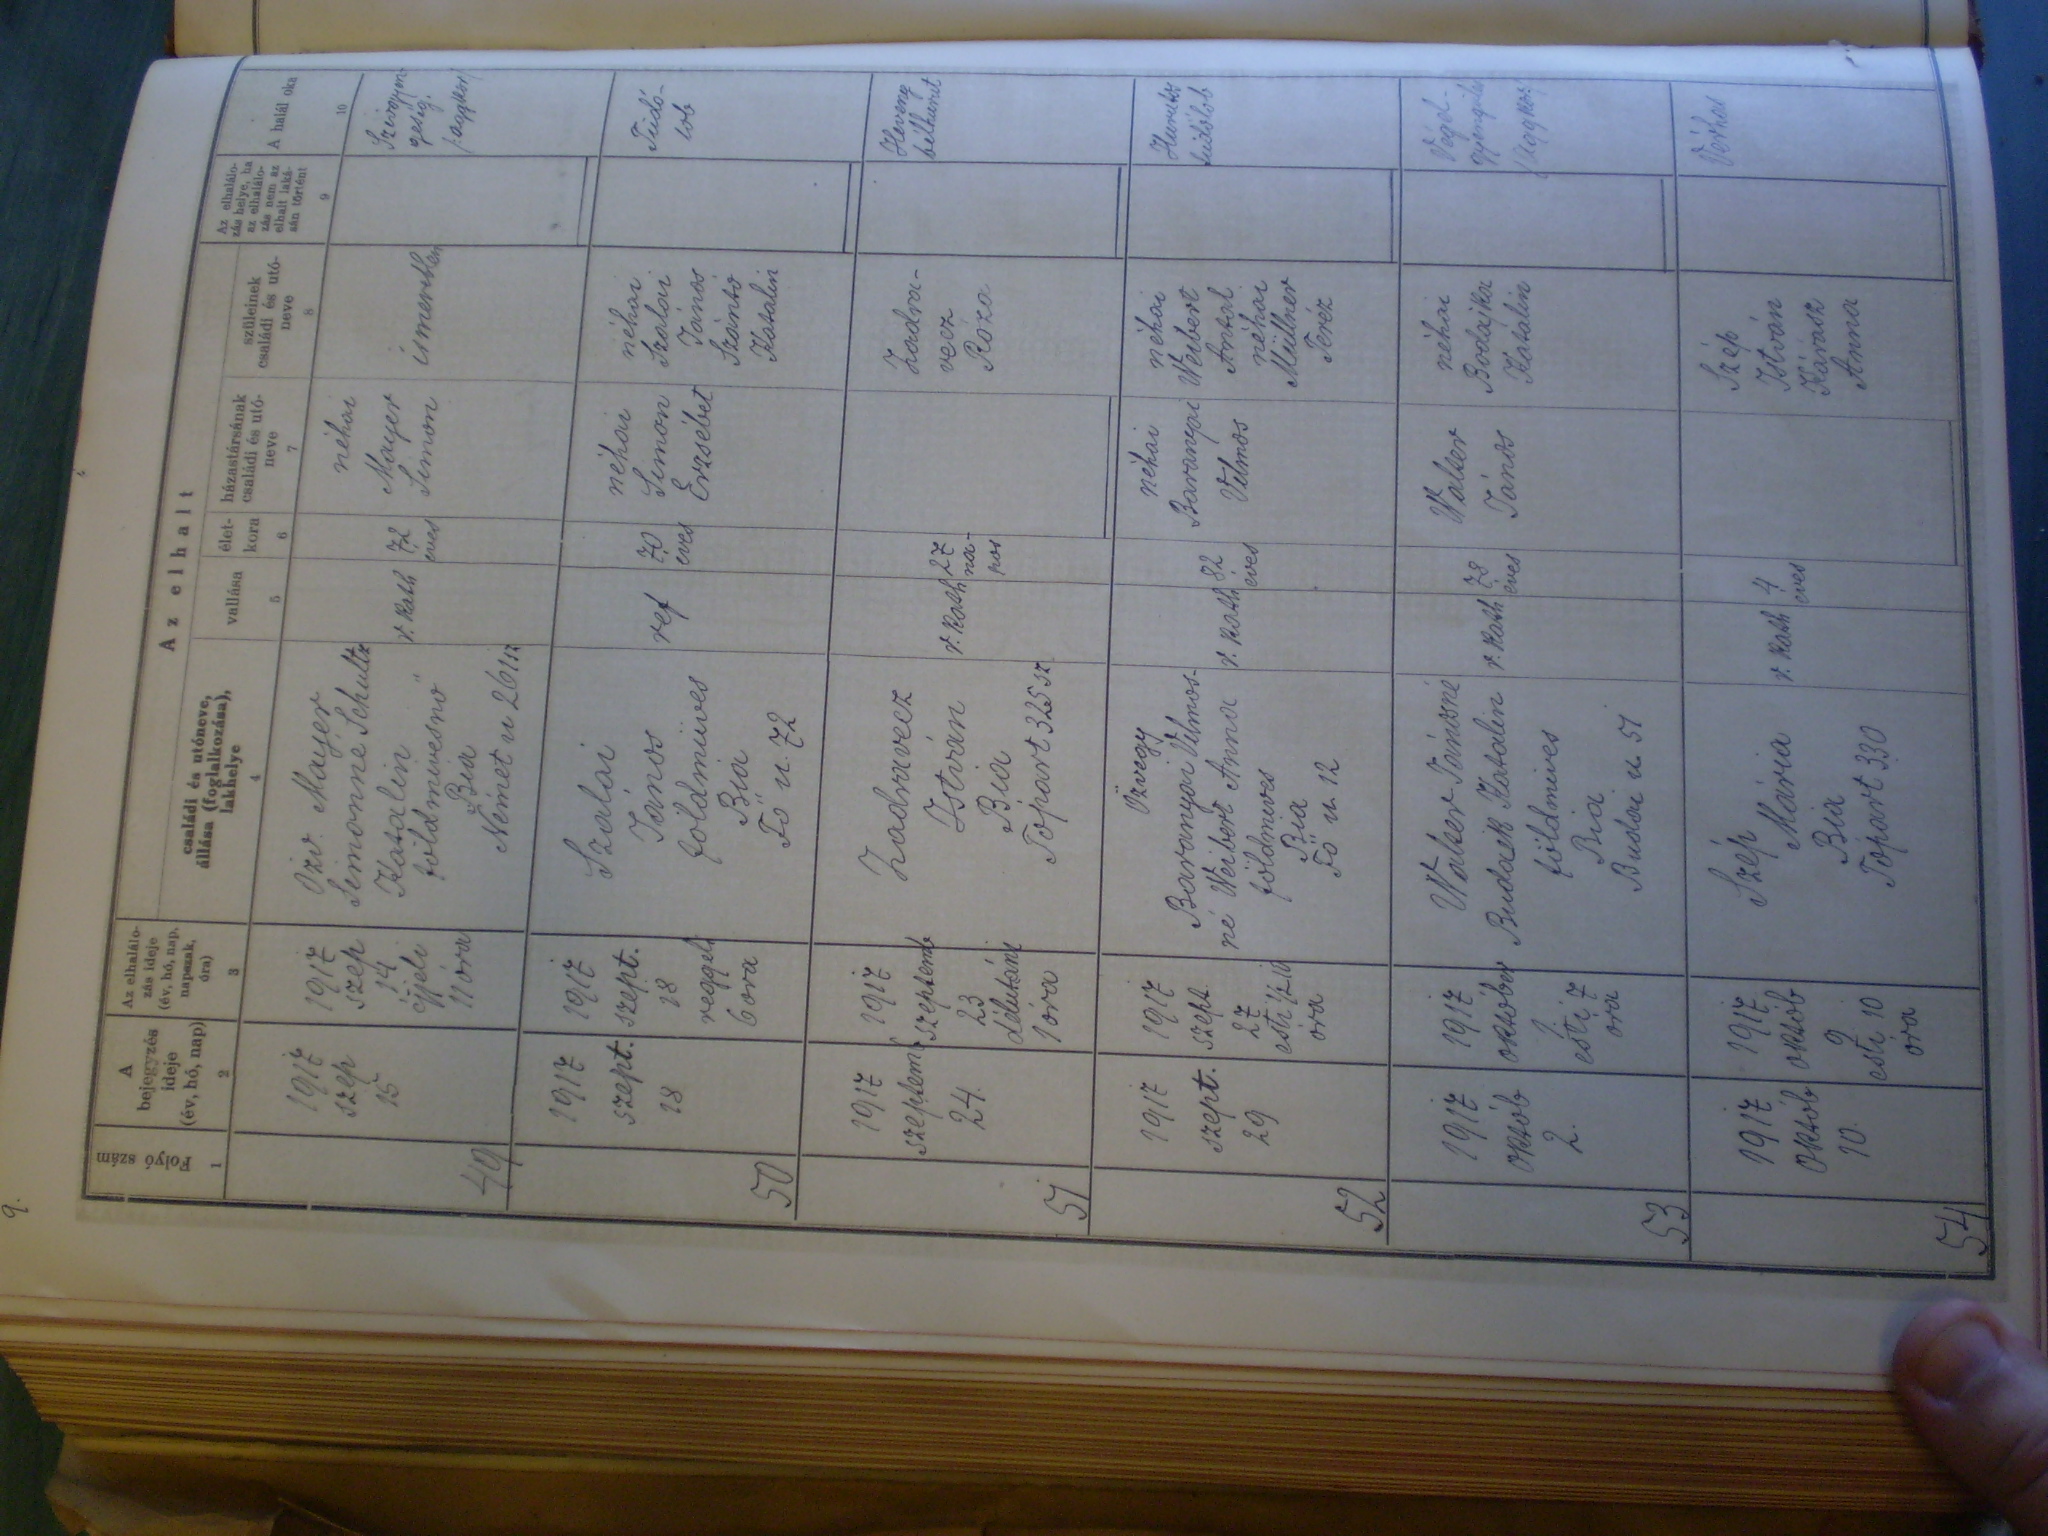 9.
Az elhalt
Folyó
szám
1
A
bejegyzés
ideje
(év, hó, nap)
2
Az elhalálo-
zás ideje
(év, hó, nap,
napszak,
óra)
3
családi és utóneve,
állása (foglalkozása),
lakhelye
4
vallása
5
élet-
kora
6
házastársának
családi és utó-
neve
7
szüleinek
családi és utó-
neve
8
Az elhalálo-
zás helye, ha
az elhalálo-
zás nem az
elhalt laká-
sán történt
9
A halál oka
10
49
1917
szep
15
1917
szep
14
éjjeli
11 óra
Özv. Mayer
Simonné Schultz
Katalin
földmivesnő
Bia
Német u 261 sz
r. kath
72
éves
néhai
Mayer
Simon
ismeretlen
50
1917
szept.
18
1917
szept.
18
reggeli
6 óra
Szalai
János
földmüives
Bia
Fő u. 72
ref
70
éves
néhai
Simon
Erzsébet
néhai
Szalai
János
Szántó
Katalin
Tüdő-
lob
51
1917
szeptemb
24.
1917
szeptemb
23
délutáni
1 óra
Zadravecz
István
Bia
Tópart 325 sz
r. kath
27
na-
pos
Zadra-
vecz
Róza
Heveny
bélhurut
52
1917
szept.
29
1917
szept.
27
esti ½10
óra
Özvegy
Baranyai Vilmos-
né Weibert Anna
földmives
Bia
Fő u 12
r. kath
82
éves
néhai
Baranyai
Vilmos
néhai
Weibert
Antal
néhai
Müllner
Teréz
Hurutos
tüdőlob
53
1917
Októb
2.
1917
október
1.
esti 7
óra
Walser Jánosné
Budaik Katalin
földmives
Bia
Budai u 51
r. kath
78
éves
Walser
János
néhai
Bodaika
Katalin
Végel-
gyengülés
54
1917
Októb
10.
1917
októb
9
esti 10
óra
Szép
Mária
Bia
Tópart 330
r. kath
4
éves
Szép
István
Kárász
Anna
Vérhas